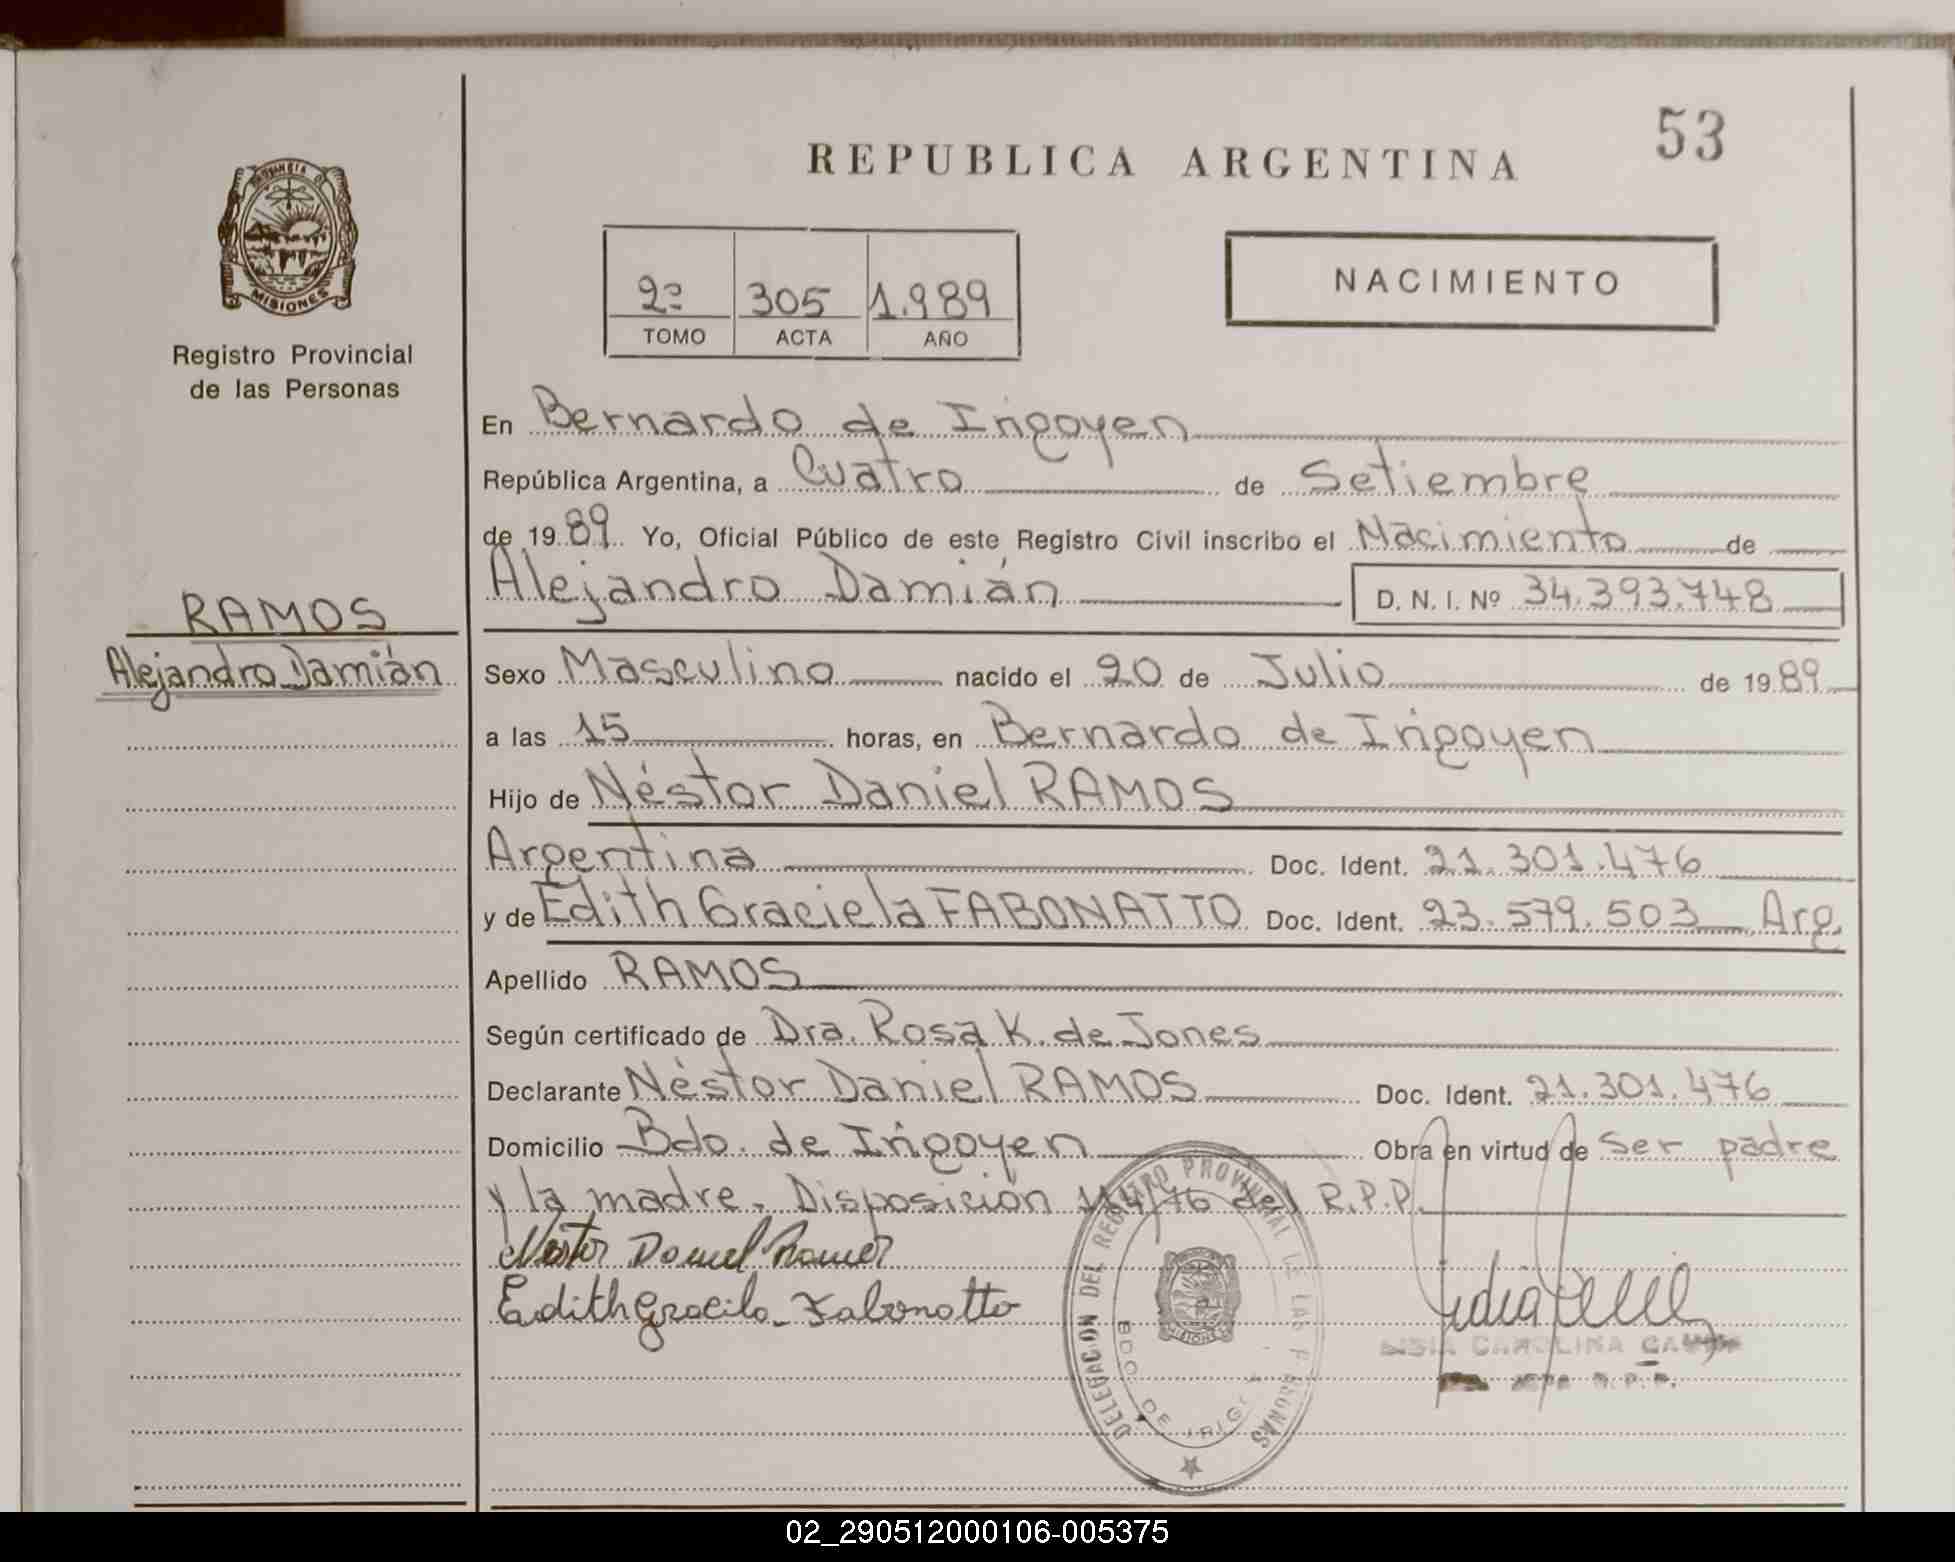 53
REPUBLICA ARGENTINA
PROVINCIA DE
MISIONES
Registro Provincial
de las Personas
2º 305 1.989
TOMO ACTA AÑO
NACIMIENTO
En Bernardo de Irigoyen
República Argentina, a Cuatro de Setiembre
de 1989 Yo, Oficial Público de este Registro Civil inscribo el Nacimiento de
Alejandro Damián D. N. I. Nº 34.393.748
RAMOS
Alejandro Damián
Sexo Masculino nacido el 20 de Julio de 1989
a las 15 horas, en Bernardo de Irigoyen
Hijo de Néstor Daniel RAMOS
Argentina Doc. Ident. 21.301.476
y de Edith Graciela FABONATTO Doc. Ident. 23.579.503 Arg.
Apellido RAMOS
Según certificado de Dra. Rosa K. de Jones
Declarante Néstor Daniel RAMOS Doc. Ident. 21.301.476
Domicilio Bdo. de Irigoyen Obra en virtud de ser padre
y la madre. Disposición 114/76 del R.P.P.
Nestor Daniel Ramos
Edith Graciela Fabonatto
DELEGACION DEL REGISTRO PROVINCIAL DE LAS PERSONAS
BDO. DE IRIGOYEN
MISIONES
CAROLINA
JEFA R.P.P.
02_290512000106-005375